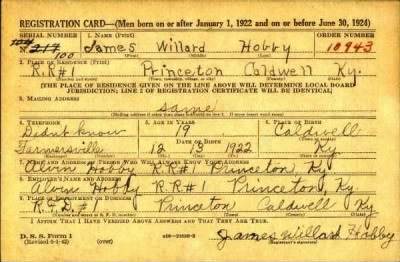 REGISTRATION CARD—(Men born on or after January 1, 1922 and on or before June 30, 1924)
SERIAL NUMBER 1. NAME (Print) ORDER NUMBER
N. 217 James Willard Hobby 10943
100 (First) (Middle) (Last)
2. PLACE OF RESIDENCE (Print)
R.R#1 Princeton Caldwell Ky.
(Number and street) (Town, township, village, or city) (County) (State)
[THE PLACE OF RESIDENCE GIVEN ON THE LINE ABOVE WILL DETERMINE LOCAL BOARD
JURISDICTION; LINE 2 OF REGISTRATION CERTIFICATE WILL BE IDENTICAL]
3. MAILING ADDRESS
Same
4. TELEPHONE 5. AGE IN YEARS 6. PLACE OF BIRTH
Didnt know 19 Caldwell
Farmersville DATE OF BIRTH
12 13 1922 Ky
7. NAME AND ADDRESS OF PERSON WHO WILL ALWAYS KNOW YOUR ADDRESS
Alvin Hobby R.R#1 Princeton Ky
8. EMPLOYER'S NAME AND ADDRESS
Alvin Hobby R.R.#1 Princeton, Ky
9. PLACE OF EMPLOYMENT OR BUSINESS
R.F.D.#1 Princeton Caldwell Ky
I AFFIRM THAT I HAVE VERIFIED ABOVE ANSWERS AND THAT THEY ARE TRUE.
D. S. S. Form 1
James Willard Hobby
(Registrant's signature)